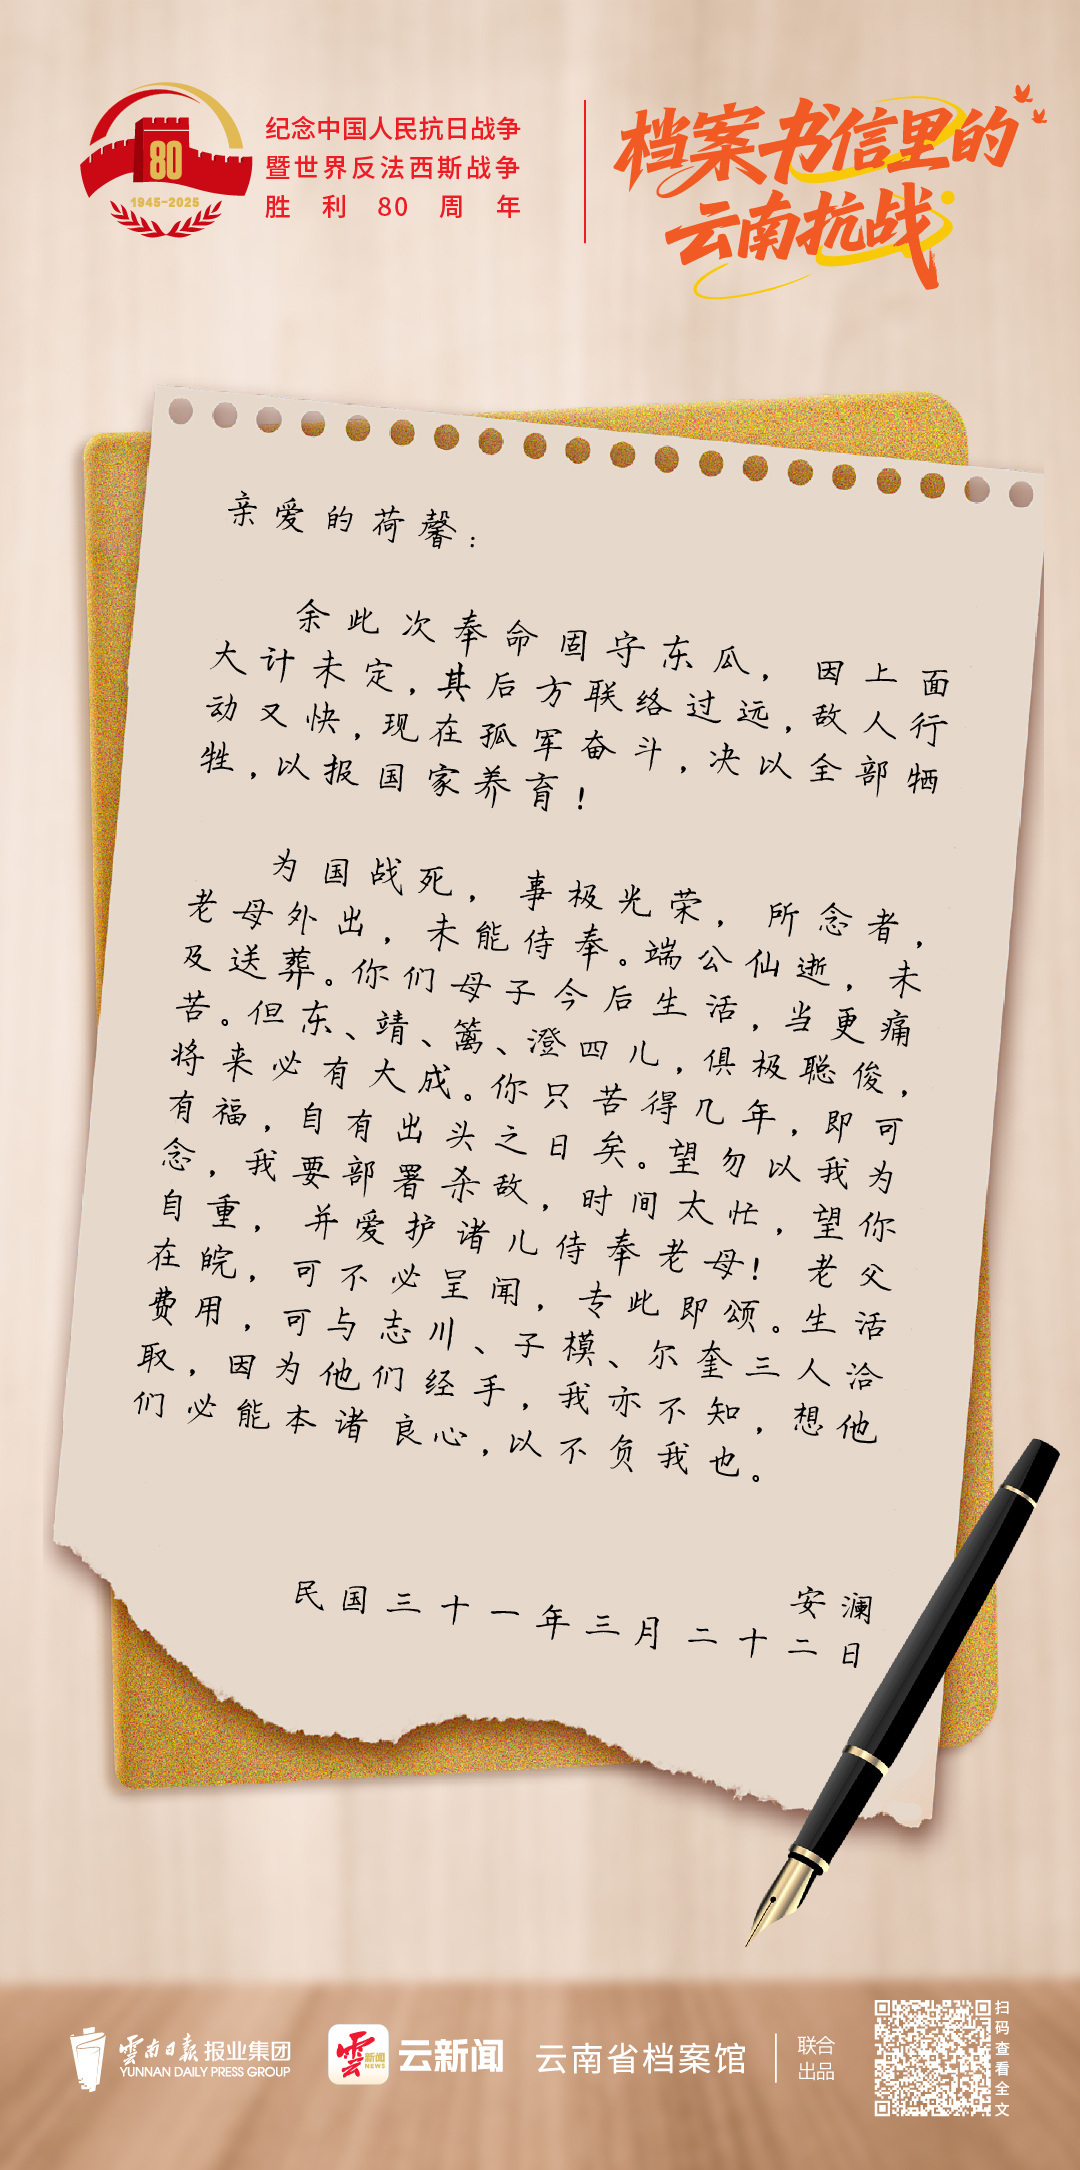 纪念中国人民抗日战争
暨世界反法西斯战争
胜利80周年
80
1945-2025
档案书信里的
云南抗战
亲爱的荷馨：
余此次奉命固守东瓜，因上面
大计未定，其后方联络过远，敌人行
动又快，现在孤军奋斗，决以全部牺
牲，以报国家养育！
为国战死，事极光荣，所念者，
老母外出，未能侍奉。端公仙逝，未
及送葬。你们母子今后生活，当更痛
苦。但东、靖、篱、澄四儿，俱极聪俊，
将来必有大成。你只苦得几年，即可
有福，自有出头之日矣。望勿以我为
念，我要部署杀敌，时间太忙，望你
自重，并爱护诸儿侍奉老母！老父
在皖，可不必呈闻，专此即颂。生活
费用，可与志川、子模、尔奎三人洽
取，因为他们经手，我亦不知，想他
们必能本诸良心，以不负我也。
安澜
民国三十一年三月二十二日
雲南日报报业集团
YUNNAN DAILY PRESS GROUP
雲新闻
NEWS
云新闻
云南省档案馆
联合
出品
扫码查看全文